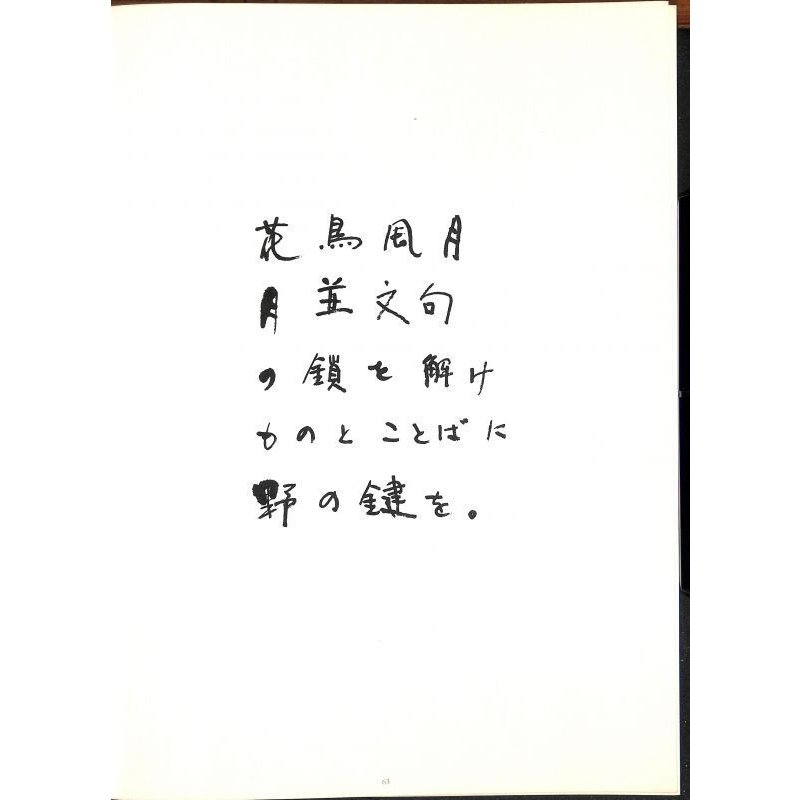 花鳥風月
月並文句
の鎖を解け
ものとことばに
野の鍵を。
63